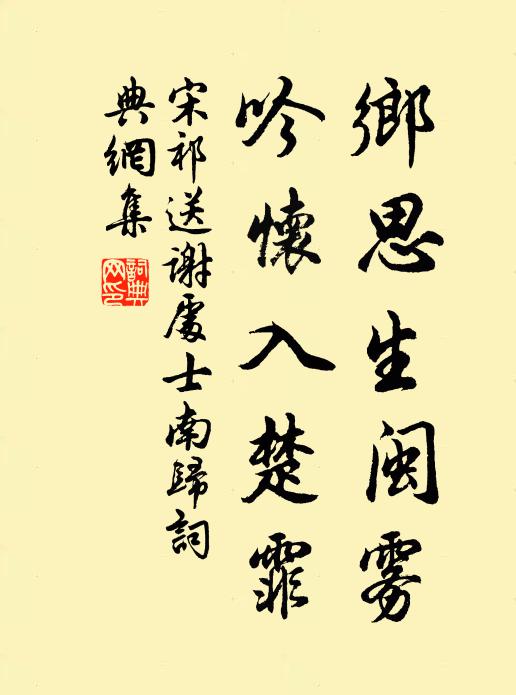 鄉思生閩雾
吟懷入楚霏
宋祁送謝處士南歸詞
典網集
詞典网印